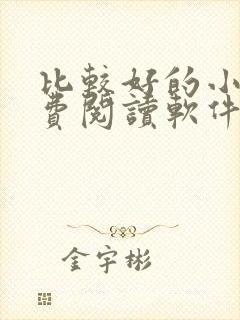 比較好的小
費閱讀軟件
金宇彬